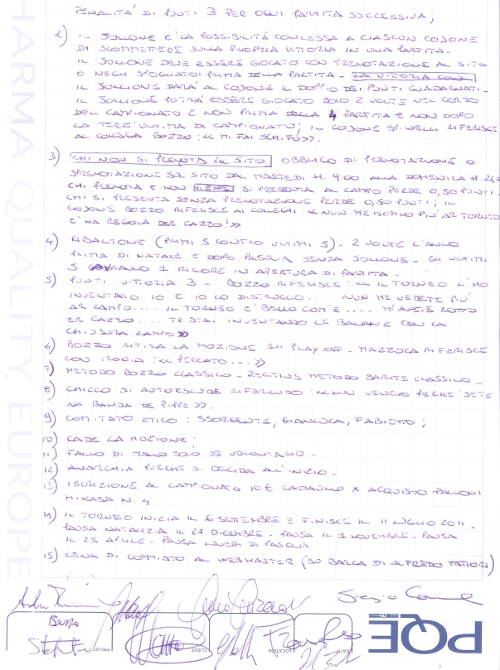 PENALITÀ DI PUNTI 3 PER OGNI PARTITA SUCCESSIVA;
2) IL JOLLONE È LA POSSIBILITÀ CONCESSA A CIASCUN COJONE
DI SCOMMETTERE SULLA PROPRIA VITTORIA IN UNA PARTITA.
IL JOLLONE DEVE ESSERE GIOCATO CON PRENOTAZIONE AL SITO
O NEGLI SPOGLIATOI PRIMA DELLA PARTITA. LA VITTORIA CON
IL JOLLONE DARÀ AL COJONE IL DOPPIO DEI PUNTI GUADAGNATI.
IL JOLLONE POTRÀ ESSERE GIOCATO SOLO 2 VOLTE NEL CORSO
DEL CAMPIONATO E NON PRIMA DELLA 4 PARTITA E NON DOPO
LA TERZ'ULTIMA DI CAMPIONATO; IL COJONE SPINELLI RIFERISCE
AL COLLEGA BOZZO: << MI FAI SCHIFO>>.
3) CHI NON SI PRENOTA IL SITO OBBLIGO DI PRENOTAZIONE O
SPRENOTAZIONE SUL SITO DAL MARTEDI H. 9,00 ALLA DOMENICA H. 24
CHI PRENOTA E NON VIENE SI PRESENTA AL CAMPO PERDE 0,50 PUNTI.
CHI SI PRESENTA SENZA PRENOTAZIONE PERDE 0,50 PUNTI; IL
COJONE BOZZO RIFERISCE AI COLLEGHI << NUN ME ISCRIVO PIU' AR TORNEO
E' NA REGOLA DER CAZZO!>>
4) RIBALTONE (PRIMI 5 CONTRO ULTIMI 5). 2 VOLTE L'ANNO
PRIMA DI NATALE E DOPO PASQUA SENZA JOLLONE. GLI ULTIMI
5 1 RIGORE IN APERTURA DI PARTITA.
5) PUNTI VITTORIA 3. BOZZO RIFERISCE: << IL TORNEO L'HO
INVENTATO IO E IO LO DISTRUGGO... NUN ME VEDETE PIU'
AR CAMPO.... IL TORNEO E' BELLO COM'E'.... M'AVETE ROTTO
ER CAZZO.... TE STAI INVENTANDO LE BALLE CON LA
>>
6) BOZZO RITIRA LA MOZIONE SUI PLAY OFF. MAZZUCA RIFERISCE
CON IRONIA: << PECCATO...>>
7) METODO BOZZO CLASSICO. RECTIUS METODO CLASSICO.
8) CHICCO SI AUTOESCLUDE RIFERENDO: <<NUN VENGO PERCHE' SETE
NA BANDA DE PIPPE>>.
9) COMITATO ETICO: SSORGENTE, GIANLUCA, FABIETTO;
10) CADE LA MOZIONE;
11) FALLO DI MANO SOLO SE VOLONTARIO.
12) ANARCHIA PURCHÈ SI DECIDA ALL'INIZIO.
13) ISCRIZIONE AL CAMPIONATO 10 € CADAUNO X ACQUISTO PALLONI
MIKASA N. 4
14) IL TORNEO INIZIA IL 6 SETTEMBRE E FINISCE IL 11 LUGLIO 2011.
PAUSA NATALIZIA IL 27 DICEMBRE. PAUSA IL 1 NOVEMBRE. PAUSA
IL 25 APRILE. PAUSA LUNEDI DI PASQUA
15) CENA DI COMMIATO AL WEBMASTER (SU BARCA DI ALFREDO FATTORI)
Bozzo
PQE
PHARMA QUALITY EUROPE